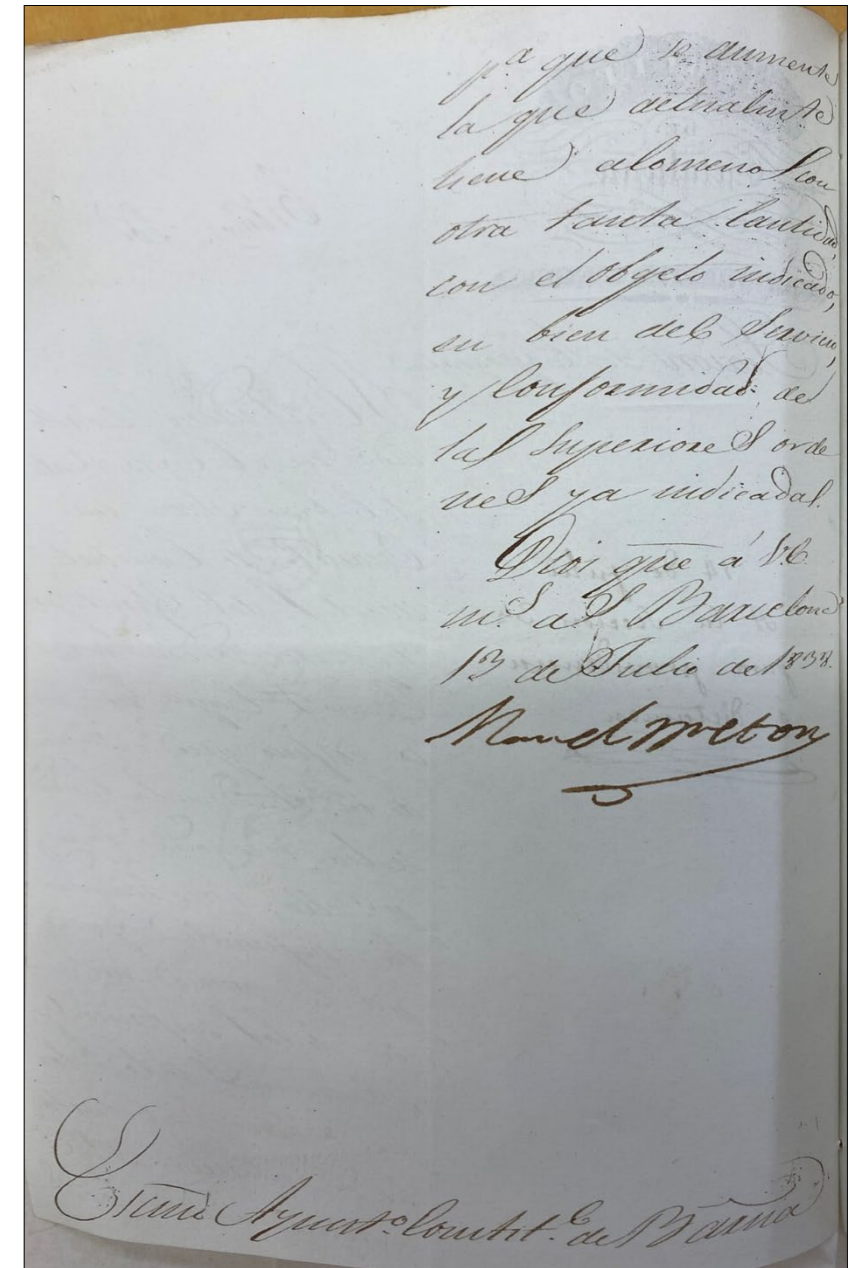 p.ª que se aumente
la que actualm.te
tiene alomenos con
otra tanta Cantidad,
con el obgeto indicado,
en bien del Servicio,
y Conformidad de
las Superiores orde
nes ya indicadas.
Dios gue á V.E.
m.s a.s Barcelona
13 de Julio de 1838.
Manuel Breton
Excmo Ayunt.o Constit.l de Barna